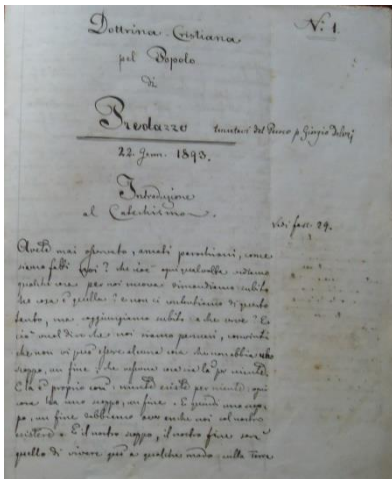 Nº 1.
Dottrina Cristiana
pel Popolo
di
Predazzo
22 Genn. 1893.
Introduzione
al Catechismo.
Vidi fasc. 29.
Avete mai osservato, amati parochiani, come
siamo fatti noi? che cioè ogni qualvolta vediamo
qualche cosa per noi nuova dimandiamo subito
che cosa è quella? e non ci contentiamo di questo
tanto, ma soggiungiamo subito: a che serve? E
ciò vuol dire che noi siamo persuasi, convinti
che non vi può essere alcuna cosa che non abbia uno
scopo, un fine; che insomma non è per niente.
E la è proprio così: niente esiste per niente: ogni
cosa ha uno scopo, un fine. E quindi uno sco-
po, un fine dobbiamo aver anche noi col nostro
esistere. E il nostro scopo, il nostro fine sarà
quello di vivere qui a qualche modo sulla terra